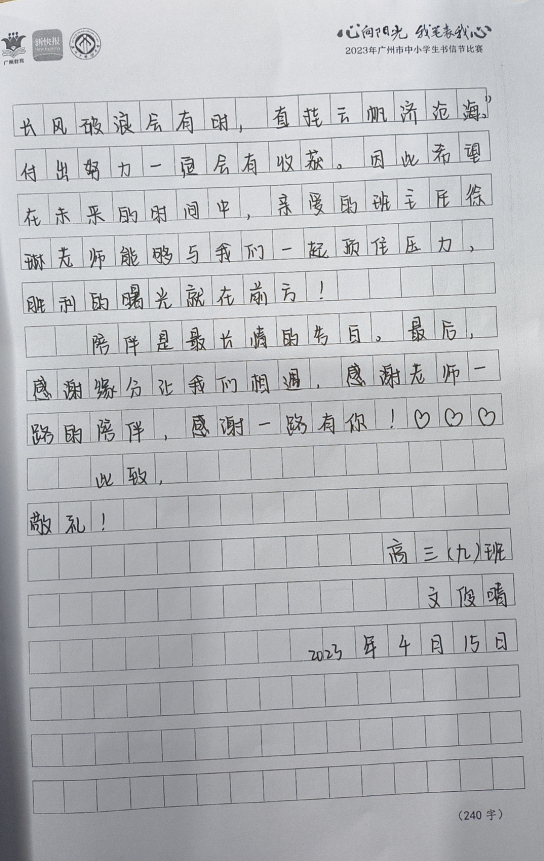 广州教育
新快报
心向阳光 我笔表我心
2023年广州市中小学生书信节比赛
长风破浪会有时，直挂云帆济沧海。”
付出努力一定会有收获。因此希望
在未来的时间中，亲爱的班主任徐
琳老师能够与我们一起顶住压力，
胜利的曙光就在前方！
陪伴是最长情的告白。最后，
感谢缘分让我们相遇，感谢老师一
路的陪伴，感谢一路有你！♡♡♡
此致，
敬礼！
高三（九）班
文俊晴
2023年4月15日
（240字）